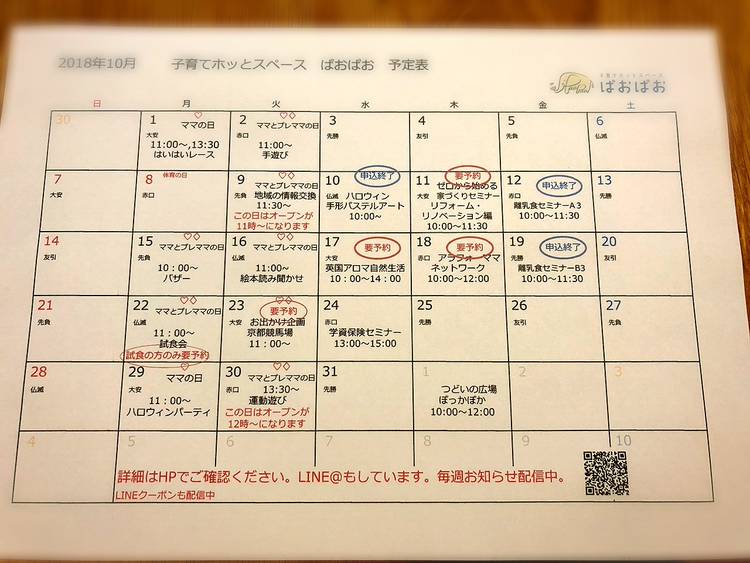 2018年10月 子育てホッとスペース ぱおぱお 予定表
子育てホットスペース
ぱおぱお
日 月 火 水 木 金 土
30
1 ♡
大安 ママの日
11:00～,13:30
はいはいレース
2 ♡♢
赤口 ママとプレママの日
11:00～
手遊び
3
先勝
4
友引
5
先負
6
仏滅
7
大安
8 体育の日
赤口
9 ♡♢
先勝 ママとプレママの日
地域の情報交換
11:30～
この日はオープンが
11時～になります
10 申込終了
仏滅 ハロウィン
手形パステルアート
10:00～
11 要予約
大安 ゼロから始める
家づくりセミナー
リフォーム・
リノベーション編
10:00～11:30
12 申込終了
赤口
離乳食セミナーA3
10:00～11:30
13
先勝
14
友引
15 ♡♢
先負 ママとプレママの日
10：00～
バザー
16 ♡♢
仏滅 ママとプレママの日
11:00～
絵本読み聞かせ
17 要予約
大安
英国アロマ自然生活
10：00～14：00
18 要予約
赤口 アラフォーママ
ネットワーク
10:00～12:00
19 申込終了
先勝
離乳食セミナーB3
10:00～11:30
20
友引
21
先負
22 ♡♢
仏滅 ママとプレママの日
11：00～
試食会
試食の方のみ要予約
23 ♡♢
要予約
大安 お出かけ企画
京都競馬場
11：00～
24
赤口
学資保険セミナー
13:00～15:00
25
先勝
26
友引
27
先負
28
仏滅
29 ♡
大安 ママの日
11：00～
ハロウィンパーティ
30 ♡♢
赤口 ママとプレママの日
13:30～
運動遊び
この日はオープンが
12時～になります
31
先勝
1
つどいの広場
ぽっかぽか
10:00～12:00
2
3
4 5 6 7 8 9 10
詳細はHPでご確認ください。LINE@もしています。毎週お知らせ配信中。
LINEクーポンも配信中